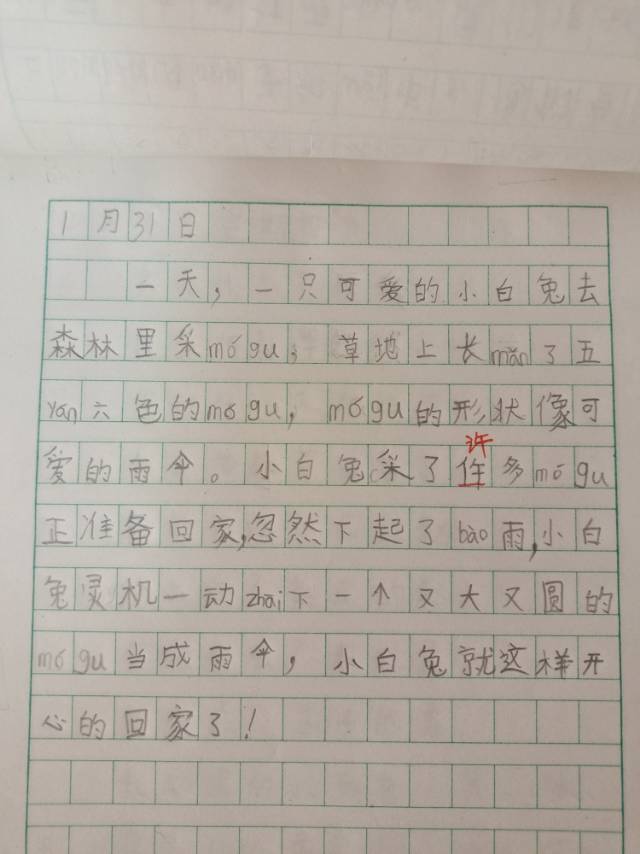 1月31日
一天，一只可爱的小白兔去
森林里采mó gu，草地上长mǎn了五
yán六色的mó gu，mó gu的形状像可
爱的雨伞。小白兔采了许多mó gu
正准备回家，忽然下起了bào雨，小白
兔灵机一动zhāi下一个又大又圆的
mó gu当成雨伞，小白兔就这样开
心的回家了！